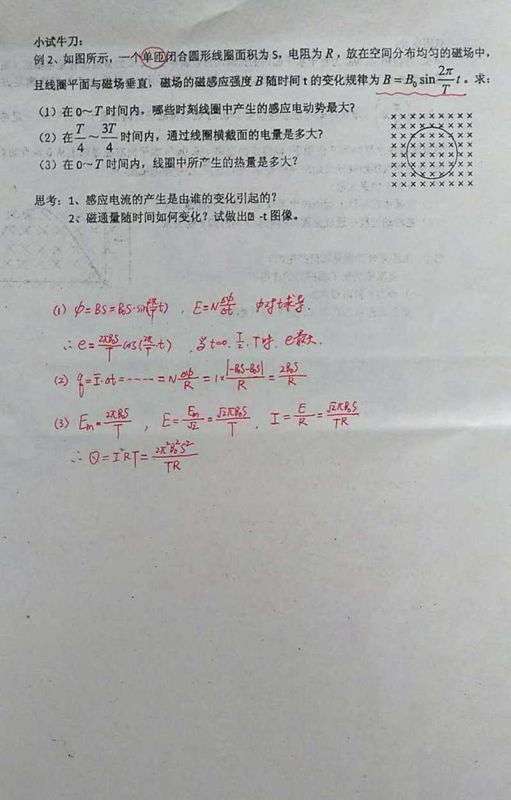 小试牛刀：
例 2、如图所示，一个单匝闭合圆形线圈面积为 S，电阻为 R，放在空间分布均匀的磁场中，
且线圈平面与磁场垂直，磁场的磁感应强度 B 随时间 t 的变化规律为 B = B₀ sin 2π/T t 。求：
（1）在 0～T 时间内，哪些时刻线圈中产生的感应电动势最大？
（2）在 T/4 ～ 3T/4 时间内，通过线圈横截面的电量是多大？
（3）在 0～T 时间内，线圈中所产生的热量是多大？
思考：1、感应电流的产生是由谁的变化引起的？
2、磁通量随时间如何变化？试做出 -t 图像。
(1) φ=BS=B₀S·sin(2π/T t) , E=N Δφ/Δt φ对t求导.
∴ e = 2πB₀S/T cos(2π/T·t) , 当 t=0. T/2 . T时. e最大.
(2) q=Ī·Δt=······=N Δφ/R = 1× |-B₀S-B₀S|/R = 2B₀S/R
(3) Em= 2πB₀S/T , E= Em/√2 = √2πB₀S/T , I= E/R = √2πB₀S/TR
∴ Q=I²RT= 2π²B₀²S²/TR